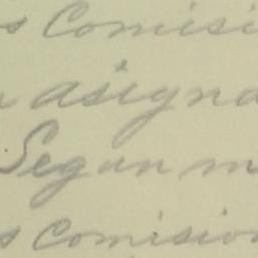 s Comisi
a asigna
Segun m
s Comision